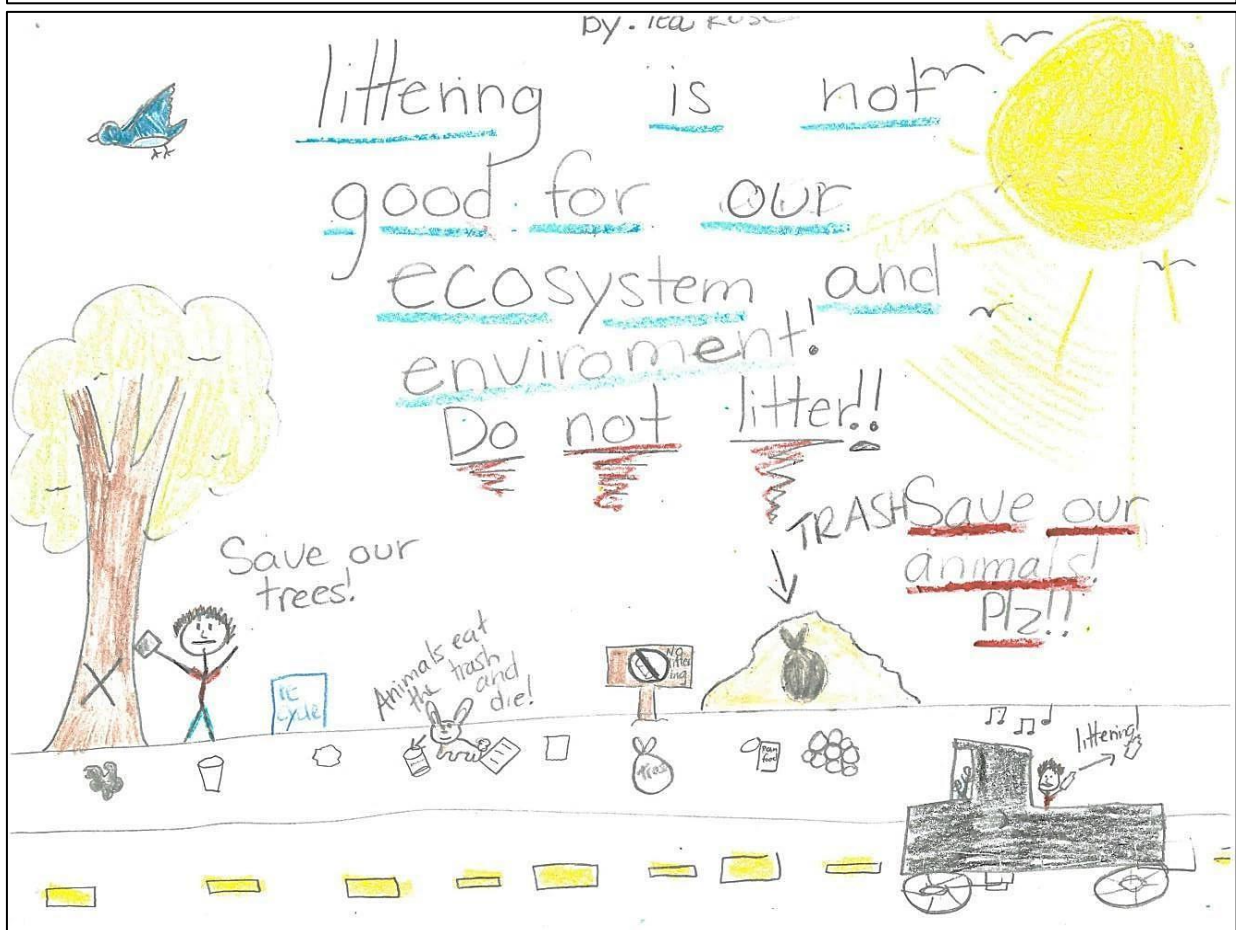 by.
littering is not
good for our
ecosystem and
enviroment!
Do not litter!!
TRASH
Save our
animals!
Plz!!
Save our
trees!
Animals eat
the trash
and
die!
NO
litter
ing
re
cycle
littering!